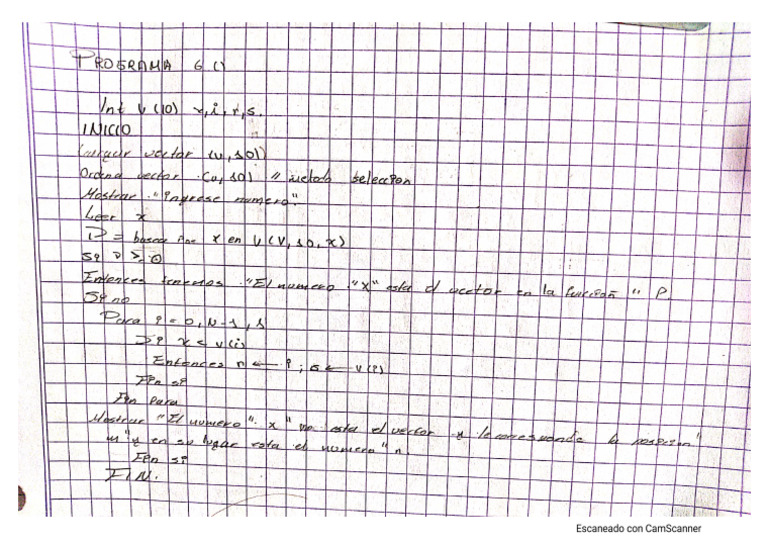 PROGRAMA 6 ()
Int V (10) x, i, r, s.
INICIO
Cargar vector (v, 10)
Ordena vector (v, 10) // metodo seleccion
Mostrar "Ingrese numero".
Leer x
P = busca x en V (V, 10, x)
Si P > 0
Entonces "El numero "x" esta el vector en la función " P.
Si no
Para i = 0, N-1, 1
Si x < v(i)
Entonces n ← i ; s ← v(i)
Fin si
Fin Para
Mostrar "El numero" x "no esta el vector y le corresponde la posicion"
"y en su lugar esta el numero" n.
Fin si
FIN.
Escaneado con CamScanner